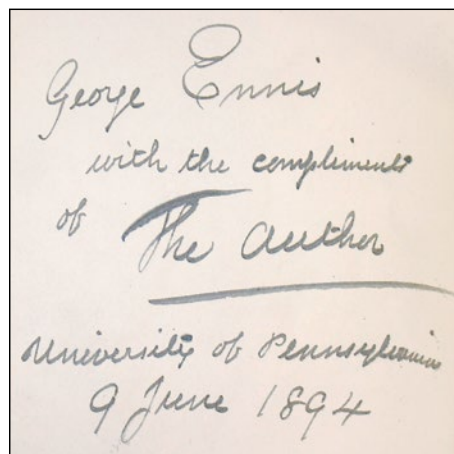 George Ennis
with the compliments
of The Author
University of Pennsylvania
9 June 1894